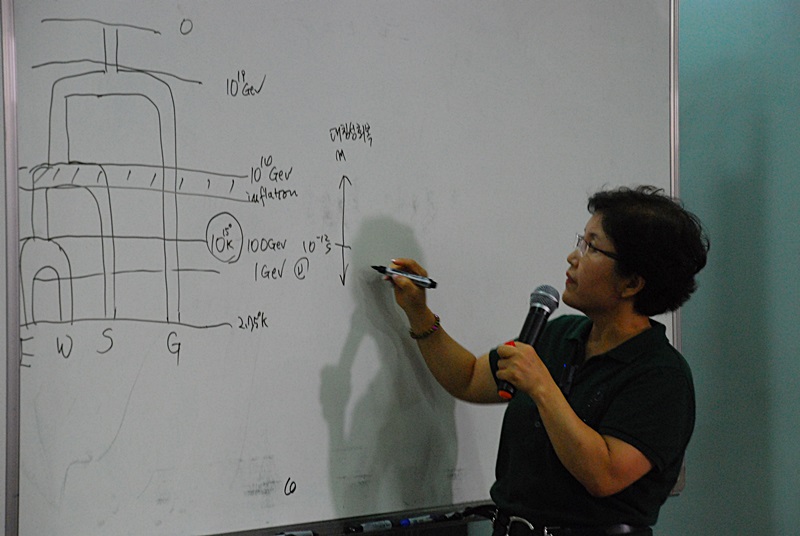 0
10¹⁹ GeV
대칭성회복
M
10¹⁶ GeV
inflation
10¹⁵°K 100GeV 10⁻¹²s
1GeV
2.75°K
E W S G
6